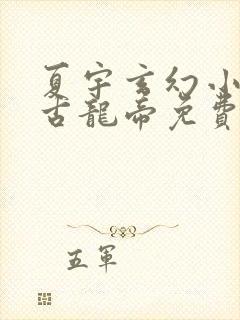 夏宇玄幻小
古龍帝免費
五軍